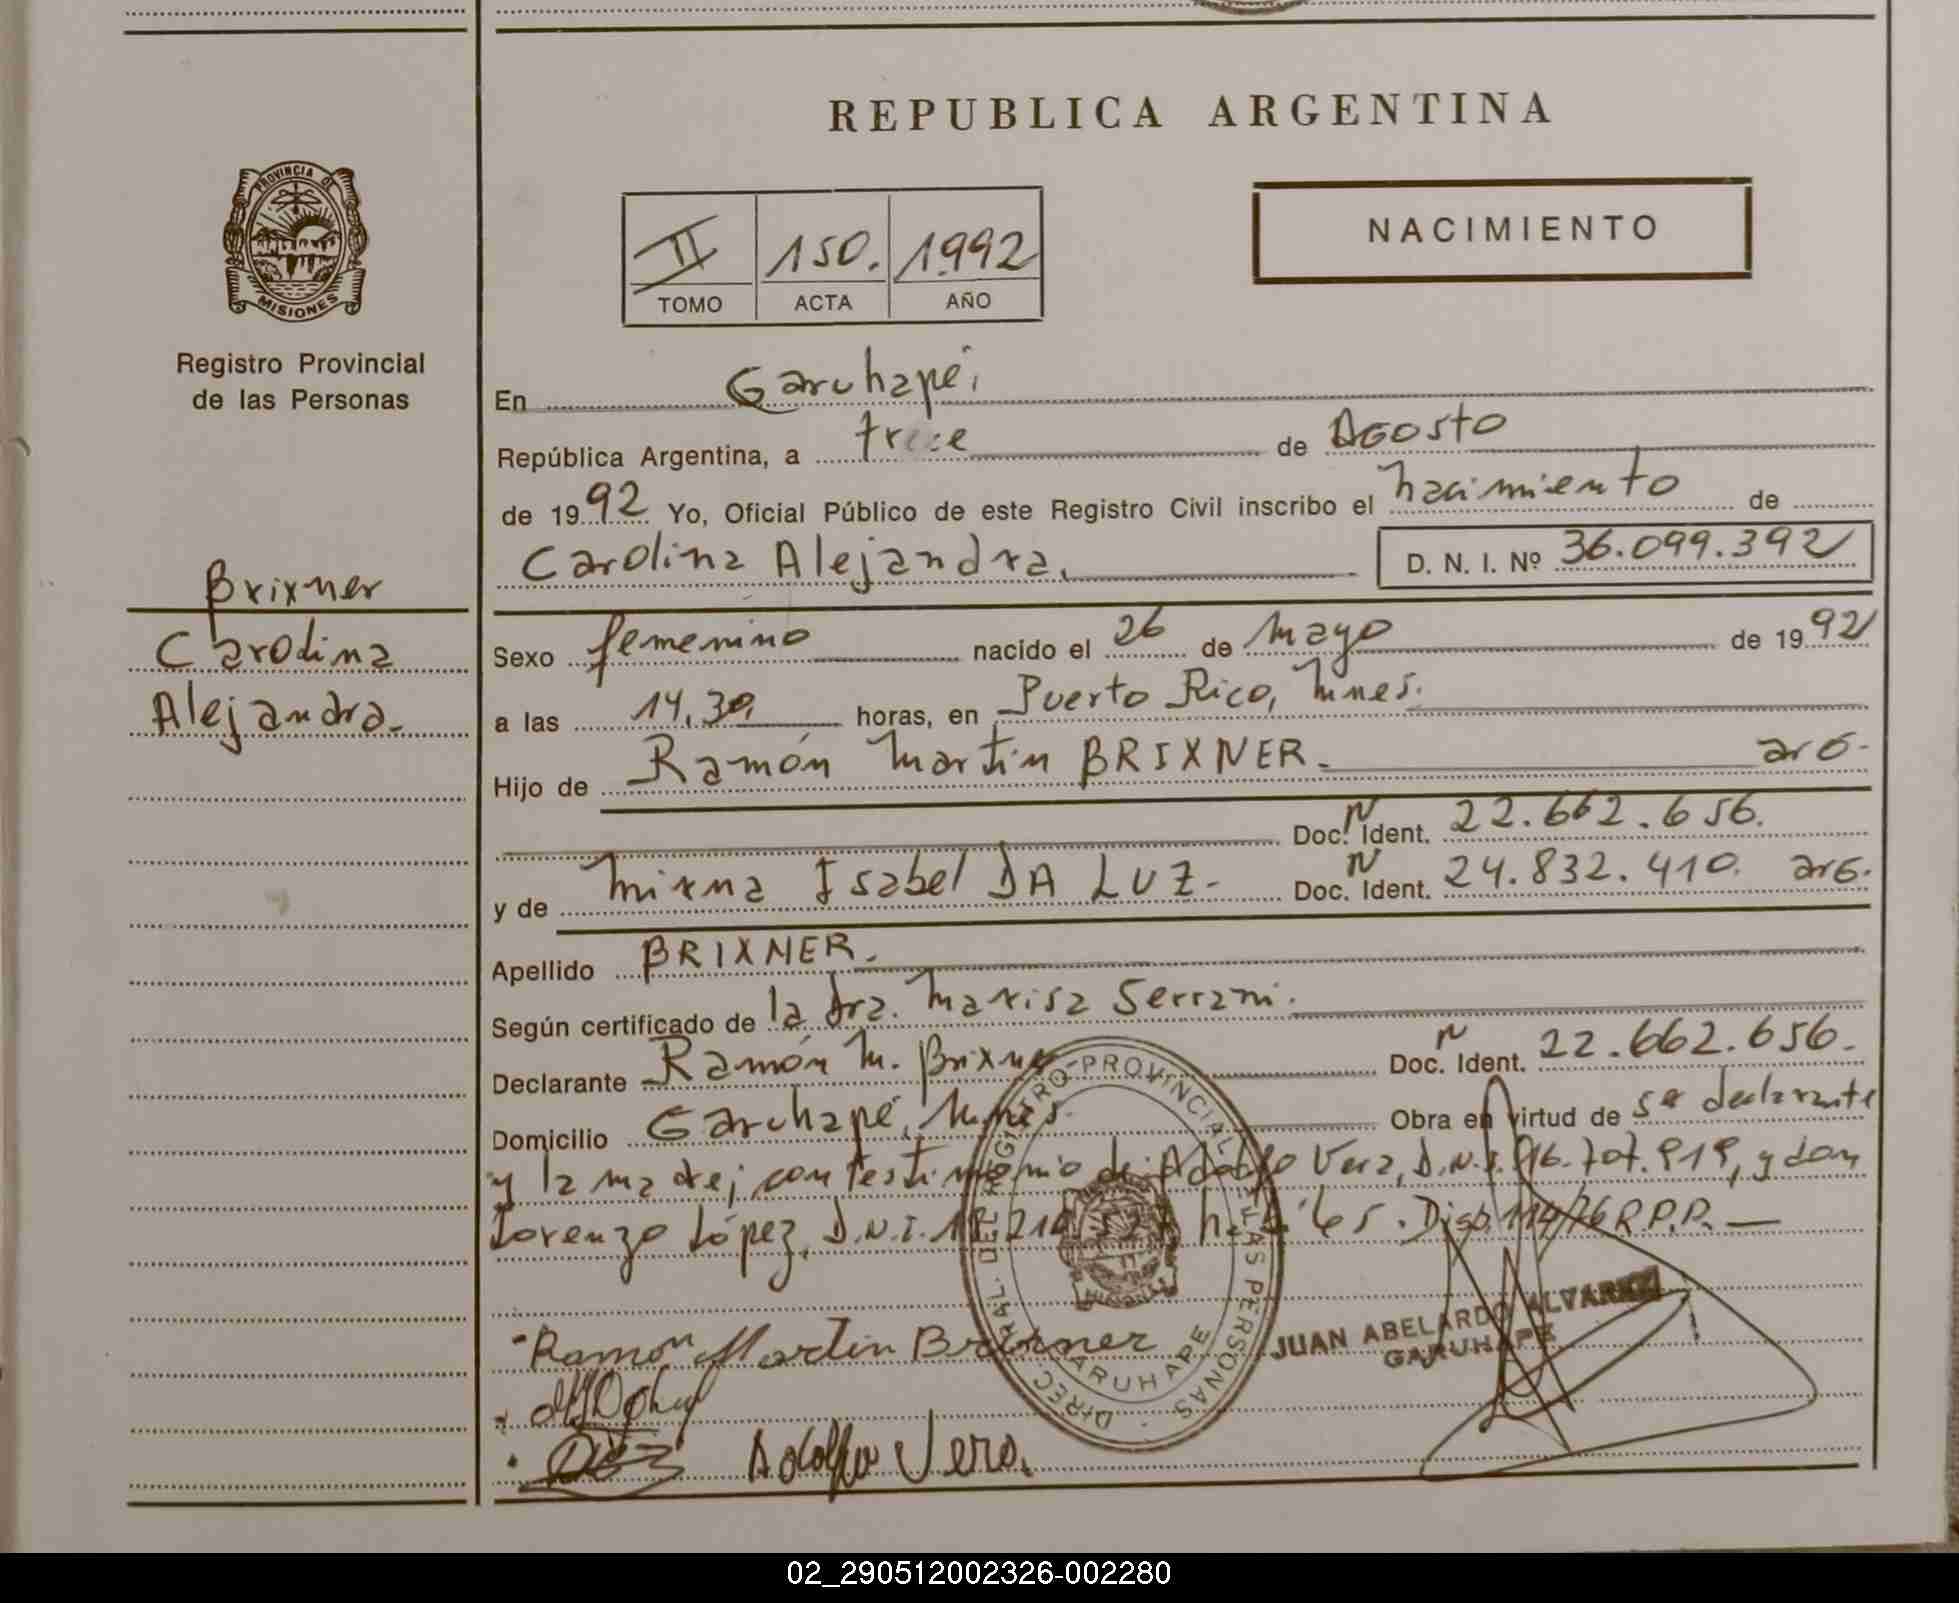 REPUBLICA ARGENTINA
PROVINCIA DE
MISIONES
Registro Provincial
de las Personas
Brixner
Carolina
Alejandra.
II 150. 1992
TOMO ACTA AÑO
NACIMIENTO
En Garuhapé,
República Argentina, a trece de Agosto
de 1992 Yo, Oficial Público de este Registro Civil inscribo el nacimiento de
Carolina Alejandra. D. N. I. Nº 36.099.392
Sexo femenino nacido el 26 de mayo de 1992
a las 14,30 horas, en Puerto Rico, Mnes.
Hijo de Ramón Martin BRIXNER. arg.
Doc. N Ident. 22.662.656.
y de Mirna Isabel DA LUZ. Doc. N Ident. 24.832.410. arg.
Apellido BRIXNER.
Según certificado de la dra. Marisa Serrani.
Declarante Ramón M. Brixner Doc. N Ident. 22.662.656.
Domicilio Garuhapé, Mnes. Obra en virtud de ser declarante
y la madre; con testimonio de: Adolfo Vera, D.N.I. y don
Lorenzo López, D.N.I. Disp. 114/76 R.P.P.
Ramon Martin Brixner
Adolfo Vera.
DIREC. GRAL. DEL REGISTRO PROVINCIAL DE LAS PERSONAS
GARUHAPE
JUAN ABELARDO ALVAREZ
GARUHAPE
02_290512002326-002280